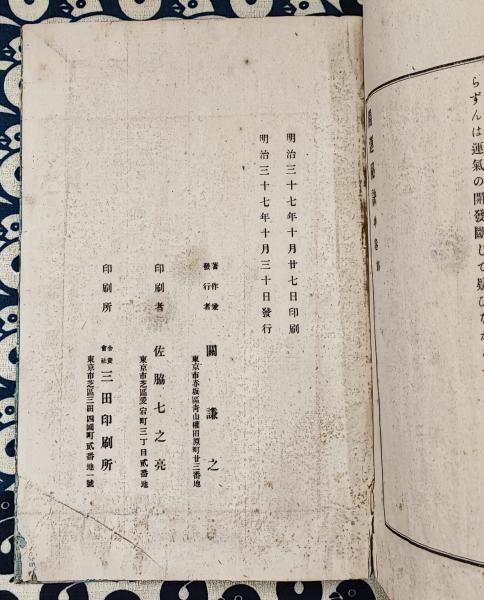 らずんは運氣の開發斷じて疑ひなか
明治三十七年十月廿七日印刷
明治三十七年十月三十日發行
著作兼
發行者
關謙之
東京市赤坂區靑山權田原町廿三番地
印刷者
佐脇七之亮
東京市芝區愛宕町三丁目貳番地
印刷所
合資
會社
三田印刷所
東京市芝區三田四國町貳番地一號